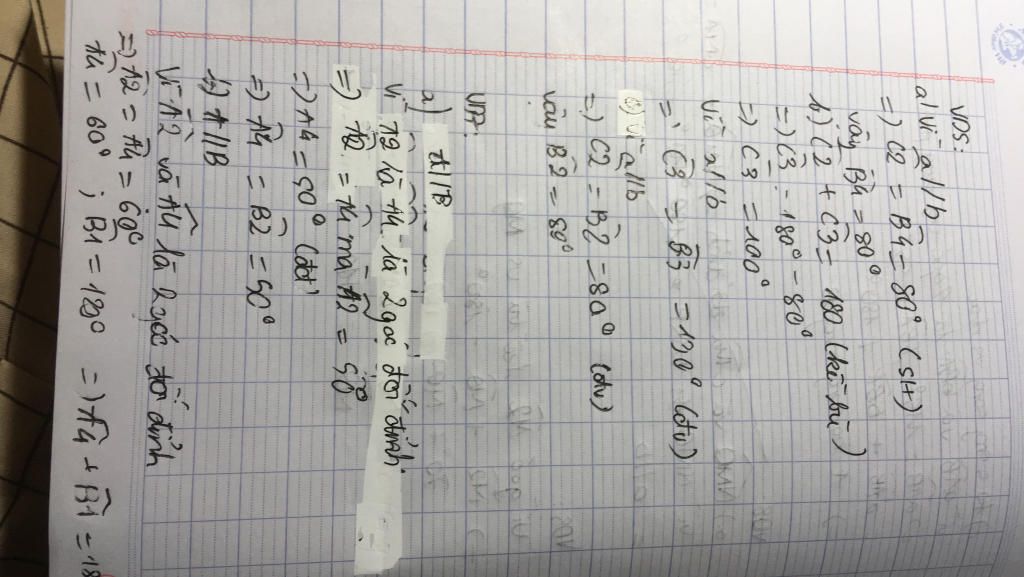 VD5:
a) Vì a//b
=) C2 = B4 = 80° (slt)
vậy B4 = 80°
b) C2 + C3 = 180 (kề bù)
=) C3 = 180° - 80°
=) C3 = 100°
Vì a//b
=) C3 = B3 = 130° (đv)
c) vì a//b
=) C2 = B2 = 80° (đv)
vậy B2 = 80°
a) A//B
Vì A2 và A4 là 2 góc đối đỉnh
=) A2 = A4 mà A2 = 50
=) A4 = 50° (đđ)
=) A4 = B2 = 50°
b) A//B
Vì A2 và A4 là 2 góc đối đỉnh
=) A2 = A4 = 60°
A4 = 60° ; B1 = 120° =) A4 + B1 = 18